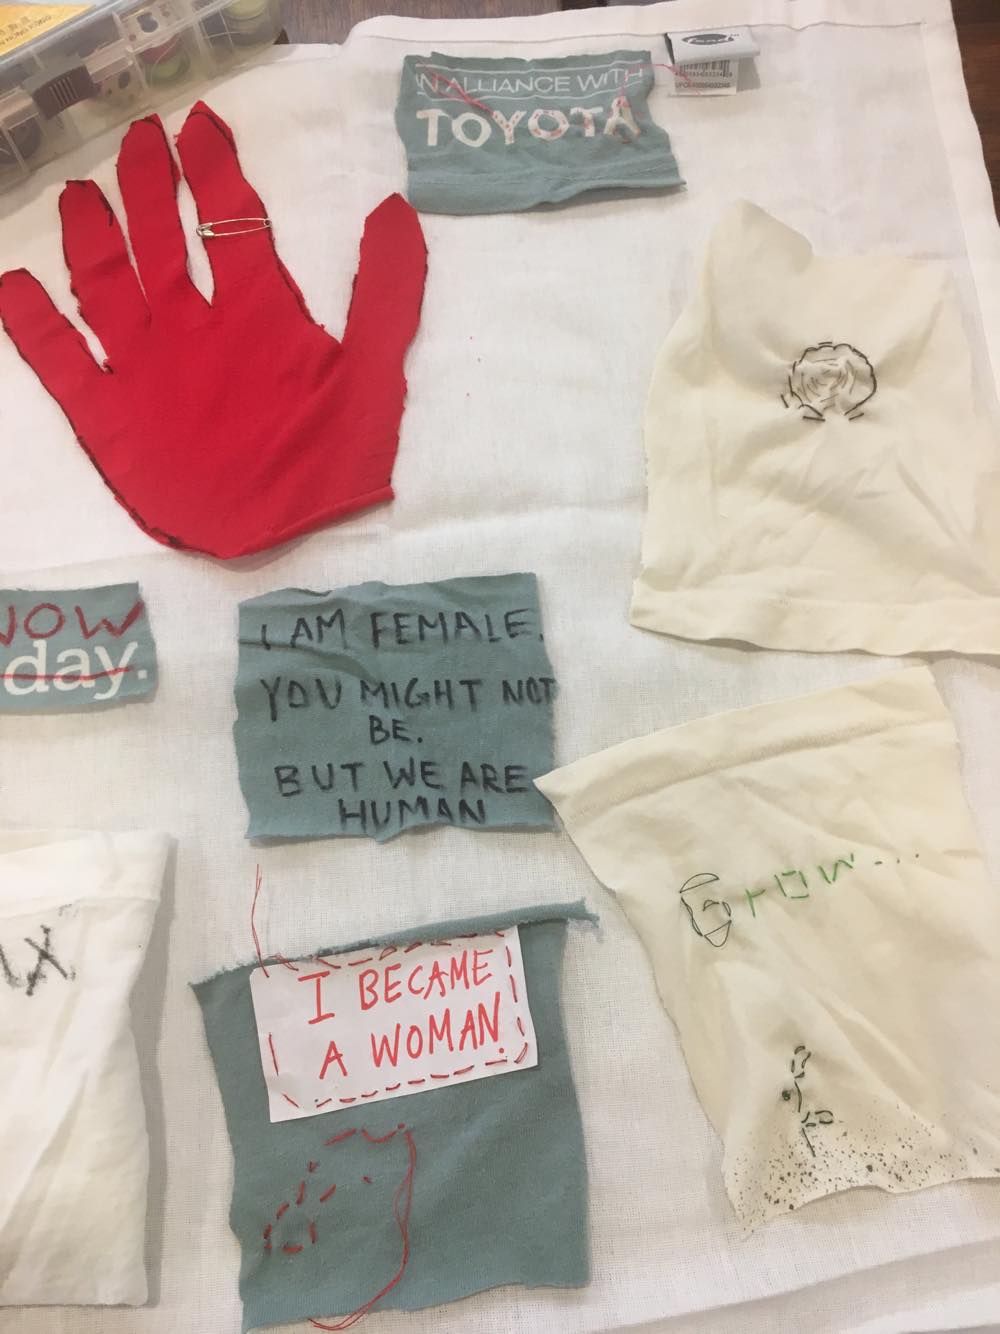 IN ALLIANCE WITH
TOYOTA
NOW
day.
I AM FEMALE.
YOU MIGHT NOT
BE.
BUT WE ARE
HUMAN
Grow...
I BECAME
A WOMAN.